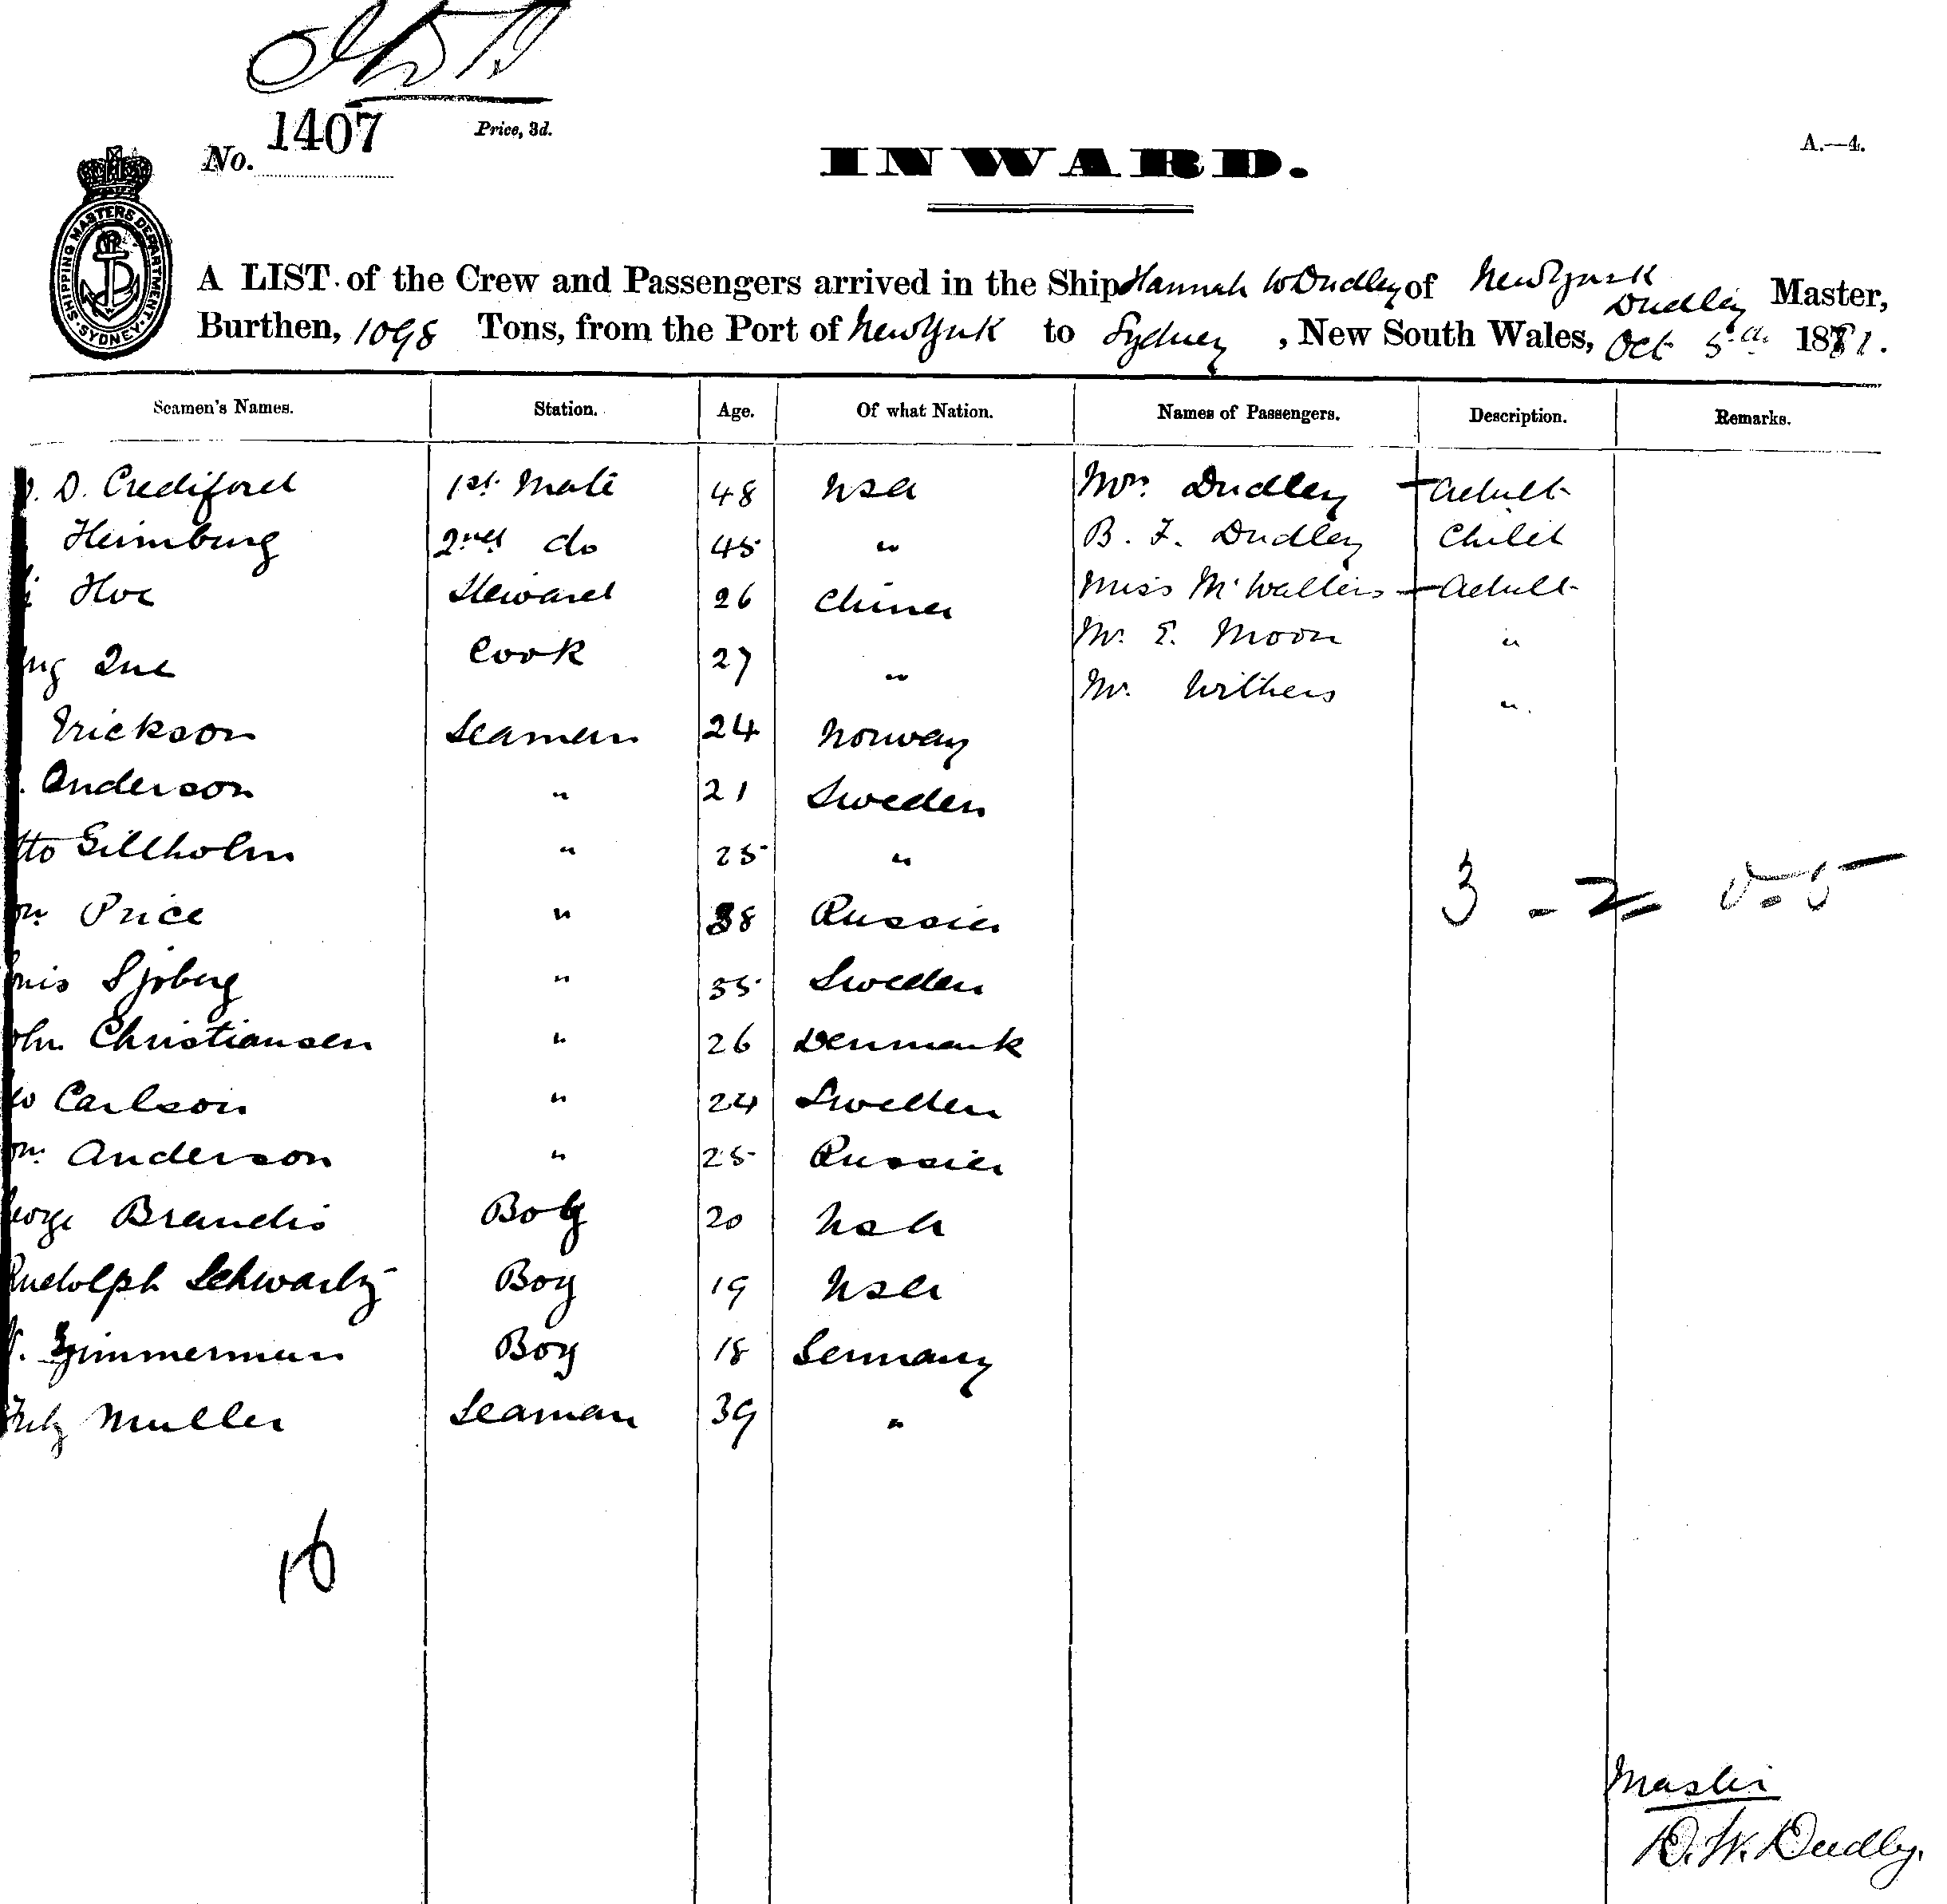 No. 1407 Price, 3d.
INWARD. A.—4.
SHIPPING MASTERS DEPARTMENT. SYDNEY.
A LIST of the Crew and Passengers arrived in the Ship Hannah W Dudley of New York
Dudley Master,
Burthen, 1098 Tons, from the Port of New York to Sydney, New South Wales, Oct 5th 1881.
Seamen's Names. Station. Age. Of what Nation. Names of Passengers. Description. Remarks.
D. Crediford 1st Mate 48 USA Mrs. Dudley Adult
Heimburg 2nd do 45 " B. F. Dudley Child
Hoe Steward 26 China Miss McWalters Adult
Que Cook 27 " Mr. E. Moon "
Mr. Withers "
Erickson Seaman 24 Norway
Anderson " 21 Sweden
tto Gillholm " 25 "
m Price " 38 Russia
Sjoberg " 35 Sweden
ohn Christiansen " 26 Denmark
Carlson " 24 Sweden
m Anderson " 25 Russia
eorge Brandis Boy 20 USA
Rudolph Schwartz Boy 19 USA
Zimmerman Boy 18 Germany
Fritz Muller Seaman 39 "
3 - 2 = 0 = 5
16
Master
D. W. Dudley.